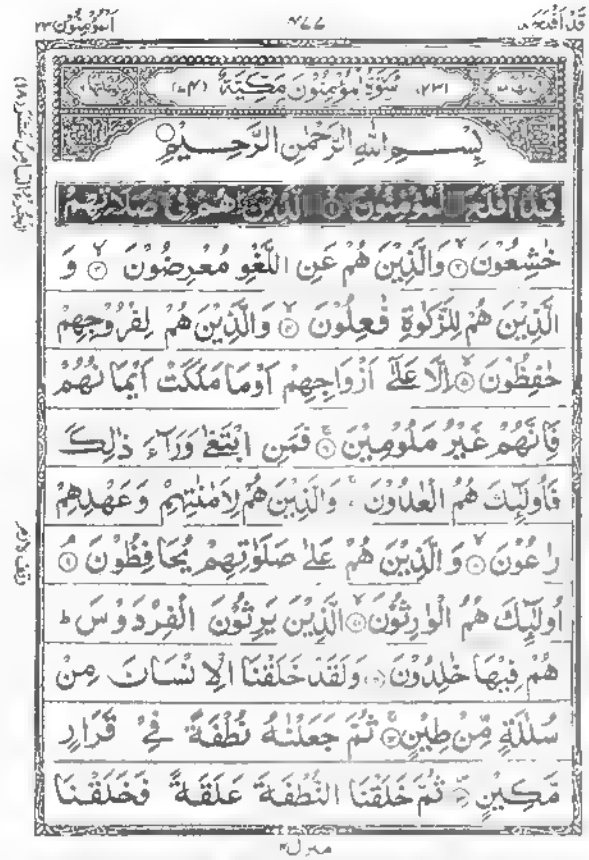 قَدْ اَفْلَحَ ۱۸ ۴۷۷ اَلْمُؤْمِنُوْن ۲۳
(۲۳) سُوْرَةُ الْمُؤْمِنُوْنَ مَكِّيَّةٌ (۷۴)
بِسْمِ اللّٰهِ الرَّحْمٰنِ الرَّحِيْمِ
قَدْ اَفْلَحَ الْمُؤْمِنُوْنَ ۱ الَّذِيْنَ هُمْ فِيْ صَلَاتِهِمْ
خٰشِعُوْنَ ۲ وَالَّذِيْنَ هُمْ عَنِ اللَّغْوِ مُعْرِضُوْنَ ۳ وَ
الَّذِيْنَ هُمْ لِلزَّكٰوةِ فٰعِلُوْنَ ۴ وَالَّذِيْنَ هُمْ لِفُرُوْجِهِمْ
حٰفِظُوْنَ ۵ اِلَّا عَلٰٓى اَزْوَاجِهِمْ اَوْمَا مَلَكَتْ اَيْمَانُهُمْ
فَاِنَّهُمْ غَيْرُ مَلُوْمِيْنَ ۶ فَمَنِ ابْتَغٰى وَرَآءَ ذٰلِكَ
فَاُولٰٓئِكَ هُمُ الْعٰدُوْنَ وَالَّذِيْنَ هُمْ لِاَمٰنٰتِهِمْ وَعَهْدِهِمْ
رَاعُوْنَ ۸ وَالَّذِيْنَ هُمْ عَلٰى صَلَوٰتِهِمْ يُحَافِظُوْنَ ۹
اُولٰٓئِكَ هُمُ الْوٰرِثُوْنَ ۱۰ الَّذِيْنَ يَرِثُوْنَ الْفِرْدَوْسَ ط
هُمْ فِيْهَا خٰلِدُوْنَ وَلَقَدْ خَلَقْنَا الْاِنْسَانَ مِنْ
سُلٰلَةٍ مِّنْ طِيْنٍ ۱۲ ثُمَّ جَعَلْنٰهُ نُطْفَةً فِيْ قَرَارٍ
مَّكِيْنٍ ثُمَّ خَلَقْنَا النُّطْفَةَ عَلَقَةً فَخَلَقْنَا
منزل ۴
وقف لازم